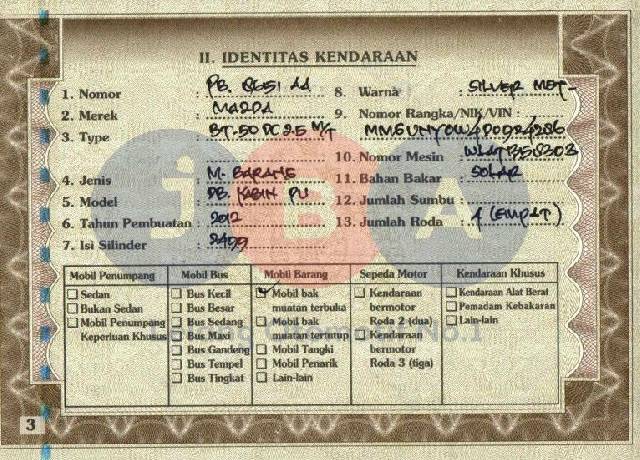 II. IDENTITAS KENDARAAN
1. Nomor : PB. 8651 AA
2. Merek : MAZDA
3. Type : BT-50 DC 2.5 M/T
4. Jenis : M. BARANG
5. Model : DB. KABIN PU
6. Tahun Pembuatan : 2012
7. Isi Silinder : 2499
8. Warna : SILVER MET-
9. Nomor Rangka/NIK/VIN :
10. Nomor Mesin :
11. Bahan Bakar : SOLAR
12. Jumlah Sumbu :
13. Jumlah Roda : 4 (EMPAT)
Mobil Penumpang
Sedan
Bukan Sedan
Mobil Penumpang
Keperluan Khusus
Mobil Bus
Bus Kecil
Bus Besar
Bus Sedang
Bus Maxi
Bus Gandeng
Bus Tempel
Bus Tingkat
Mobil Barang
Mobil bak
muatan terbuka
Mobil bak
muatan tertutup
Mobil Tangki
Mobil Penarik
Lain-lain
Sepeda Motor
Kendaraan
bermotor
Roda 2 (dua)
Kendaraan
bermotor
Roda 3 (tiga)
Kendaraan Khusus
Kendaraan Alat Berat
Pemadam Kebakaran
Lain-lain
iBA
No.1
3